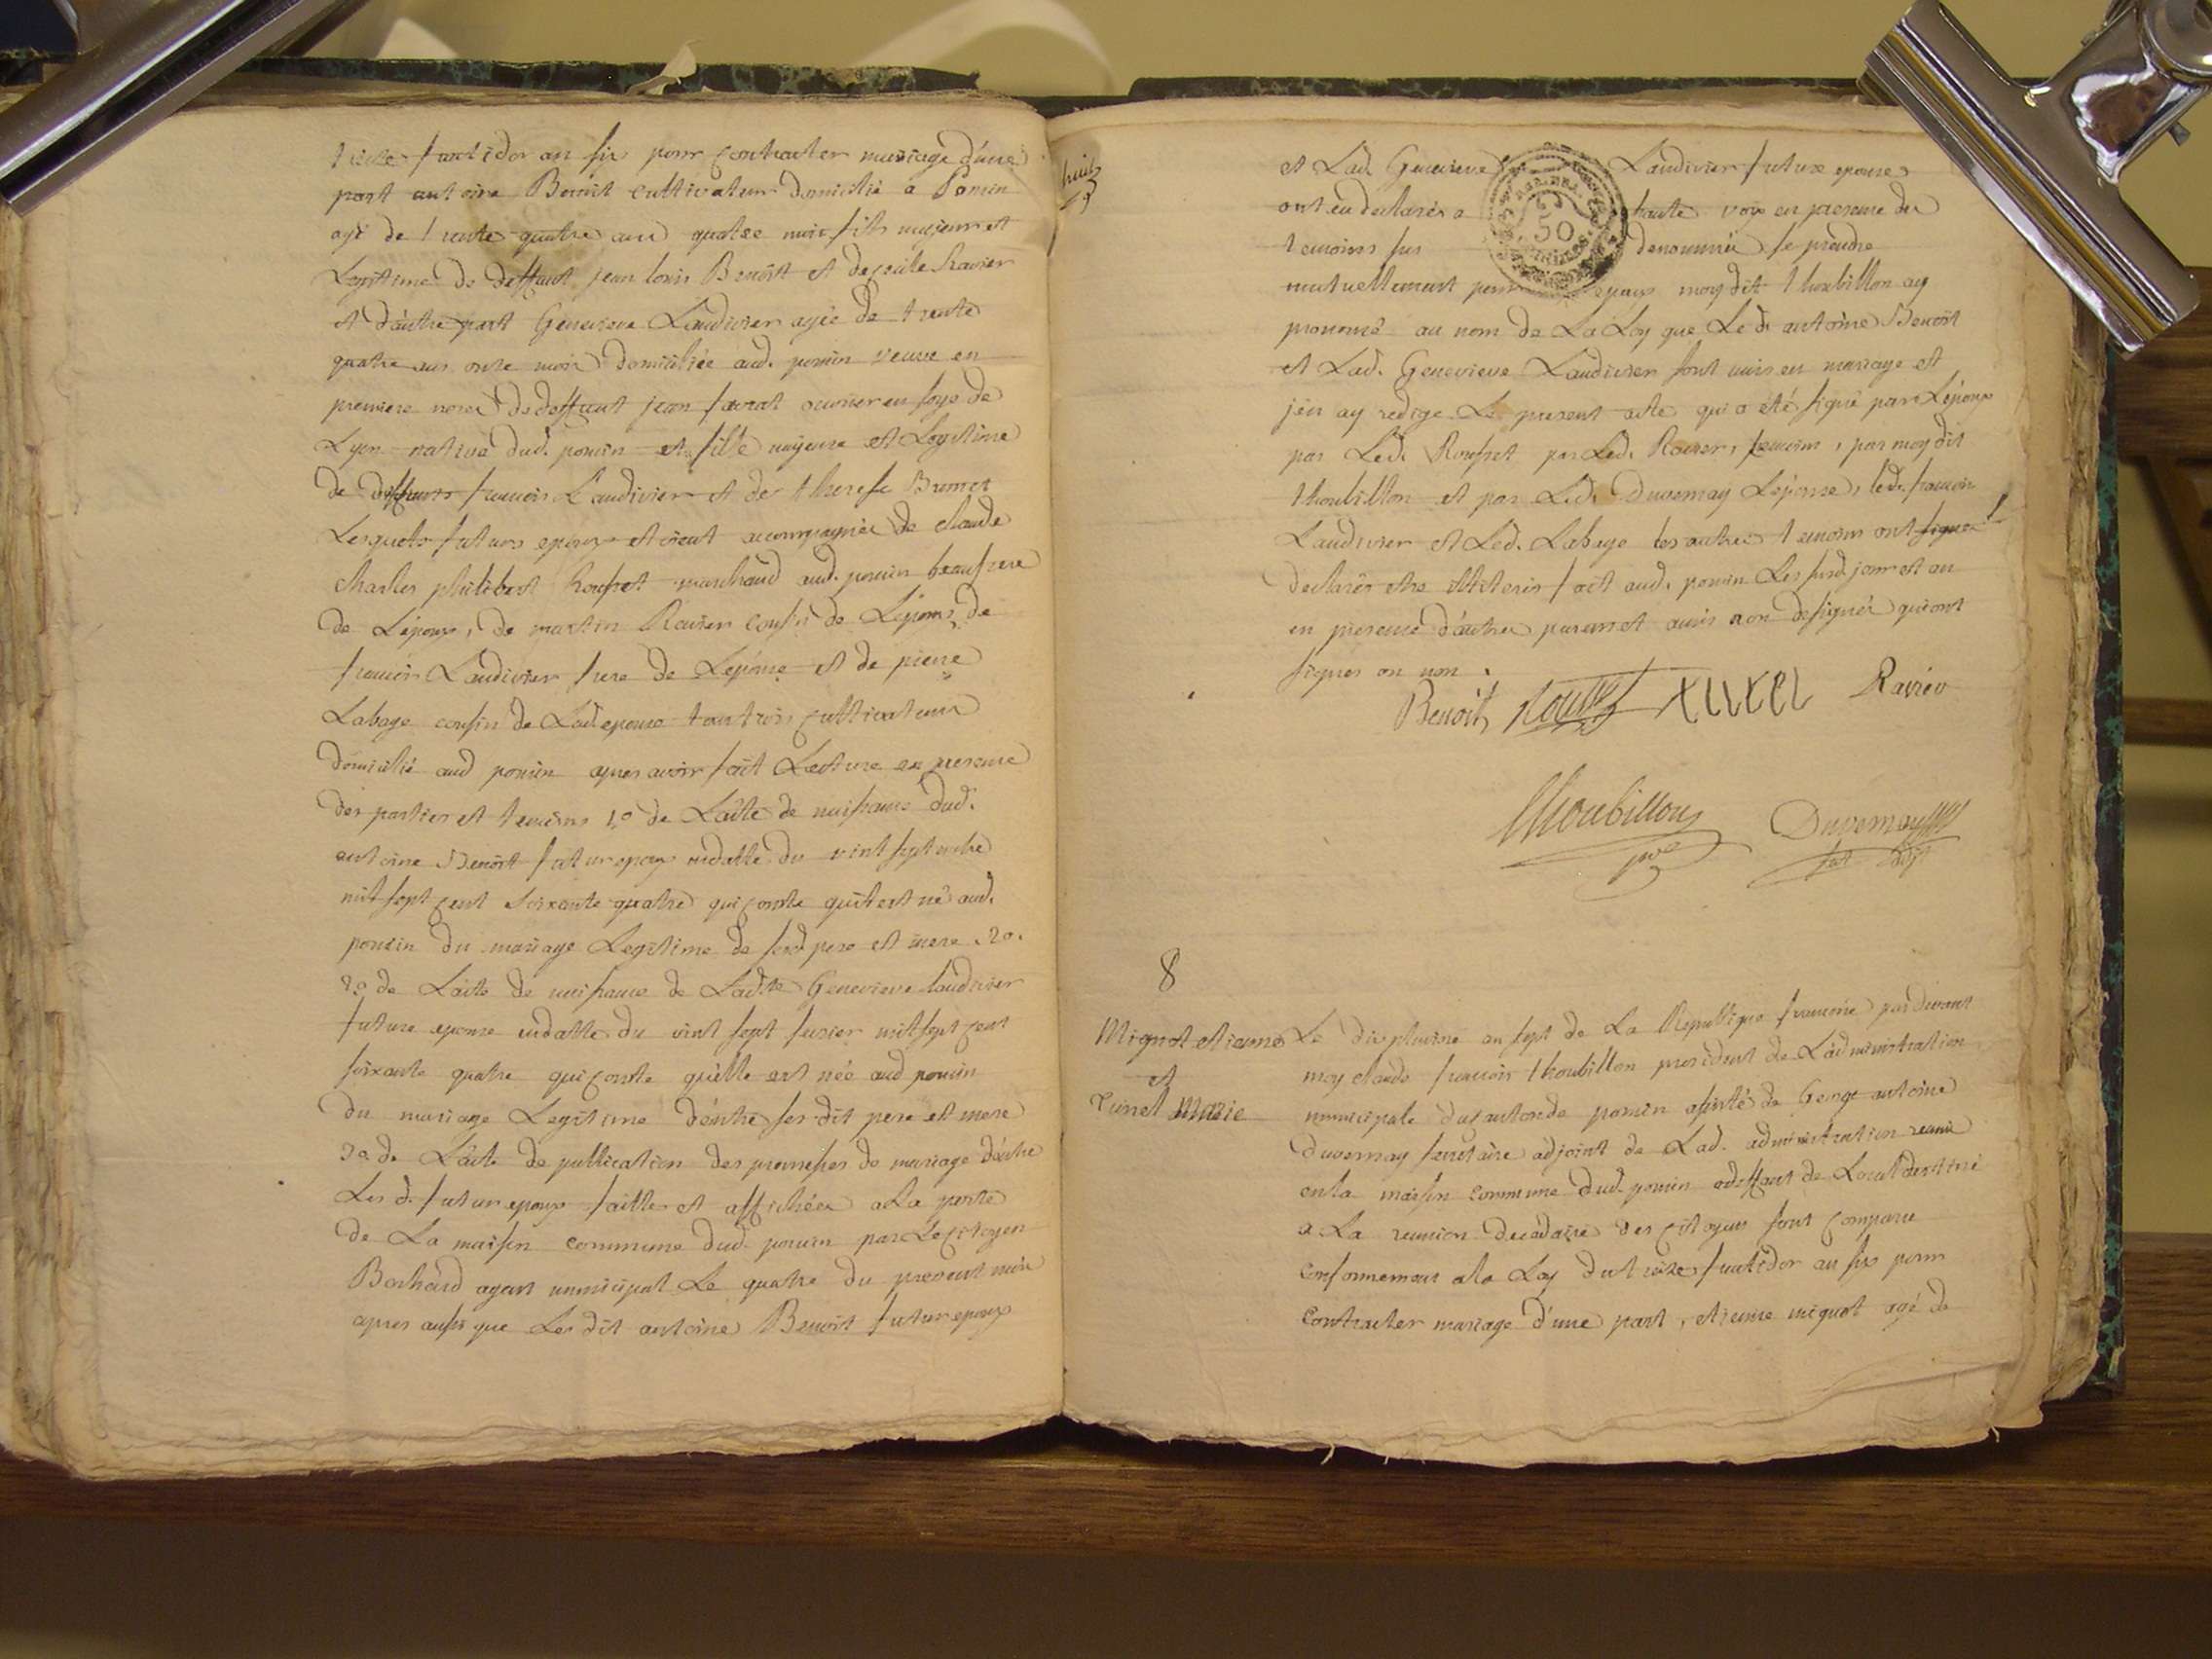 treize fructidor an six pour contracter mariage d'une
part antoine Benoit cultivateur domicilié a Pomin
agé de trente quatre ans quatre mois fils majeur et
Legitime de deffunt jean louis Benoit et de cecile Ravier
et d'autre part Genevieve Laudivier agée de trente
quatre ans onze mois domiciliée aud. pomin veuve en
premiere noces de deffunt jean favrat ouvrier en soye de
Lyon native dud. pomin et fille majeure et Legitime
de deffunts francois Laudivier et de therese Brunet
Lesquels futurs epoux etoient accompagnés de claude
charles philibert Rousset marchand aud. pomin beaufrere
de L'epoux, de martin Ravier cousin de L'epoux, de
francois Laudivier frere de L'epouse et de pierre
Labage cousin de Lad epouse tous trois cultivateurs
domicilié aud pomin apres avoir fait Lecture en presence
des parties et temoins 1.o de L'acte de naissance dud.
antoine Benoit futur epoux endatte du vint septembre
mil sept cent soixante quatre qui conste qu'il est né aud.
pomin du mariage Legitime de sesd pere et mere . 2o.
2o de L'acte de naissance de Ladte Genevieve laudivier
future epouse endatte du vint sept fevrier mil sept cent
soixante quatre qui conste qu'elle est née aud pomin
du mariage Legitime d'entre ses dit pere et mere
3o de L'acte de publication des promesses de mariage d'entre
Les d. futur epoux faitte et affichée a La porte
de La maison commune dud. pomin par Le citoyen
Bachard agent municipal Le quatre du present mois
apres aussi que Les dit antoine Benoit futur epoux
huit
et Lad. Genevieve Laudivier future epouse
ont eu declarés a haute voix en presence des
temoins sus denommés se prendre
mutuellement pour epoux moy dit thoubillon ay
prononcé au nom de La Loy que Le d. antoine Benoit
et Lad. Genevieve Laudivier sont unis en mariage et
j'en ay redigé Le present acte qui a été signé par L'epoux
par Led. Rousset par Led. Ravier, temoins, par moy dit
thoubillon et par Led. Duvernay L'epouse, led. francois
Laudivier et Led. Labage les autres temoins ont signer
declarés etre illiterés fait aud. pomin Les susd. jour et an
en presence d'autres parens et amis non designés qui ont
signés ou non .
Benoit Rousset Ravier
thoubillon Duvernay
pre
8
Mignot etienne
et
Cunet Marie
Le dix pluviose an sept de La Republique francoise par devant
moy claude francois thoubillon president de L'administration
municipale du canton de pomin assisté de George antoine
duvernay secretaire adjoint de Lad. administration reunie
en la maison commune dud. pomin a deffaut de Local destiné
a La reunion decadaire des citoyens sont comparu
conformement a la Loy du treize fructidor an six pour
contracter mariage d'une part, etienne mignot agé de